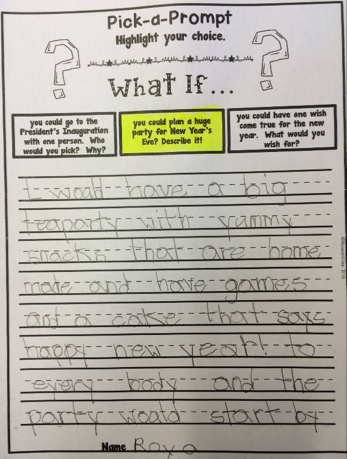 Pick-a-Prompt
Highlight your choice.
What If...
you could go to the
President's Inauguration
with one person. Who
would you pick? Why?
you could plan a huge
party for New Year's
Eve? Describe it!
you could have one wish
come true for the new
year. What would you
wish for?
I would have a big
teaparty with yummy
snacks that are home
made and have games
and a cake that says
happy new year! to
every body and the
party would start by
Name